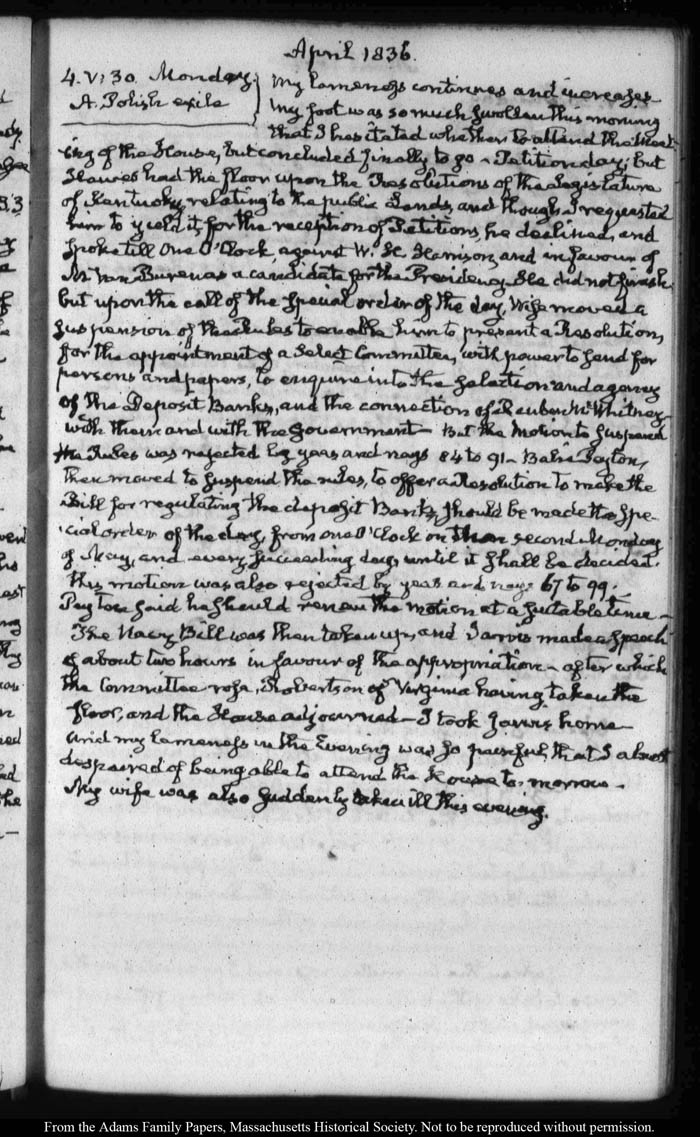 April 1836.
4. V:30. Monday.
A Polish exile
My lameness continues and increases
My foot was so much swollen this morning
that I hesitated whether to attend the Meet-
ing of the House, but concluded finally to go - Petition day; but
Hawes had the floor upon the Resolutions of the Legislature
of Kentucky relating to the public Lands, and though I requested
him to yield it, for the reception of Petitions, he declined, and
spoke till One O'Clock, against W. H. Harrison, and in favour of
M. Van Buren as a candidate for the Presidency. He did not finish
but upon the call of the special order of the day, Wise moved a
suspension of the Rules to enable him to present a Resolution,
for the appointment of a Select Committee, with power to send for
persons and papers, to enquire into the selection and agency
of the Deposit Banks, and the connection of Reuben M. Whitney
with them and with the Government - But the Motion to suspend
the Rules was rejected by yeas and nays 84 to 91 - Balie Peyton,
then moved to suspend the rules, to offer a Resolution to make the
Bill for regulating the deposit Banks, should be made the spe-
cial order of the day, from one O'Clock on the second Monday
of May, and every succeeding day, until it shall be decided.
this motion was also rejected by yeas and nays 67 to 99.
Peyton said he should renew the motion at a suitable time -
The Navy Bill was then taken up, and Jarvis made a speech
of about two hours in favour of the appropriation - after which
the Committee rose, Robertson of Virginia having taken the
floor, and the House adjourned - I took Jarvis home
and my lameness in the Evening was so painful, that I almost
despaired of being able to attend the House to-morrow -
My wife was also suddenly taken ill this evening.
From the Adams Family Papers, Massachusetts Historical Society. Not to be reproduced without permission.